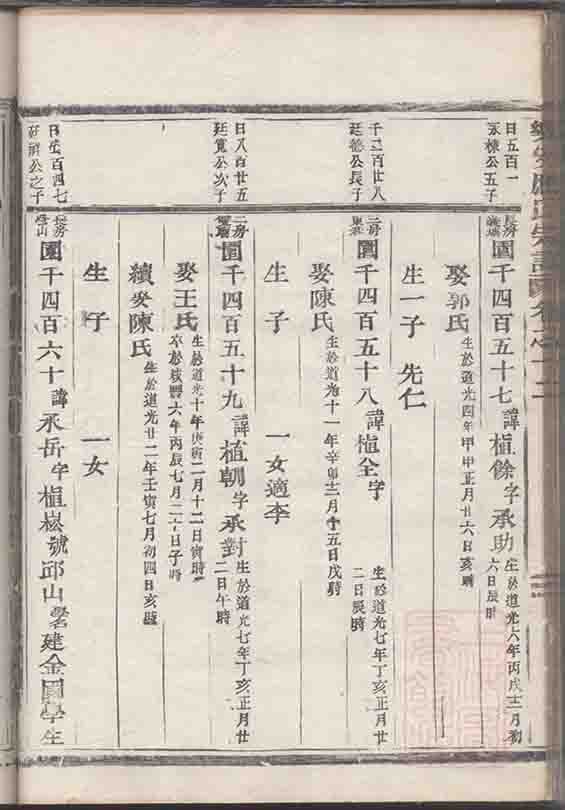 日五百一
永棟公五子
長房
圓千四百五十七諱植餘字承助
生於道光六年丙戌十二月初
六日辰時
娶郭氏
生於道光四年甲申正月廿六日亥時
生一子 先仁
千二百廿八
廷德公長子
二房
圓千四百五十八諱植全字
生於道光七年丁亥正月廿
二日辰時
娶陳氏
生於道光十一年辛卯三月十五日戌時
生 子 一女適李
日八百廿五
廷寬公次子
二房
圓千四百五十九諱植朝字承對
生於道光七年丁亥正月廿
二日午時
娶王氏
生於道光十年庚寅二月十二日寅時
卒於咸豐六年丙辰七月二十日子時
續娶陳氏
生於道光廿二年壬寅七月初四日亥時
生 子 一女
百四七
公之子
長房
圓千四百六十諱承岳字植崧號邱山名建金國學生